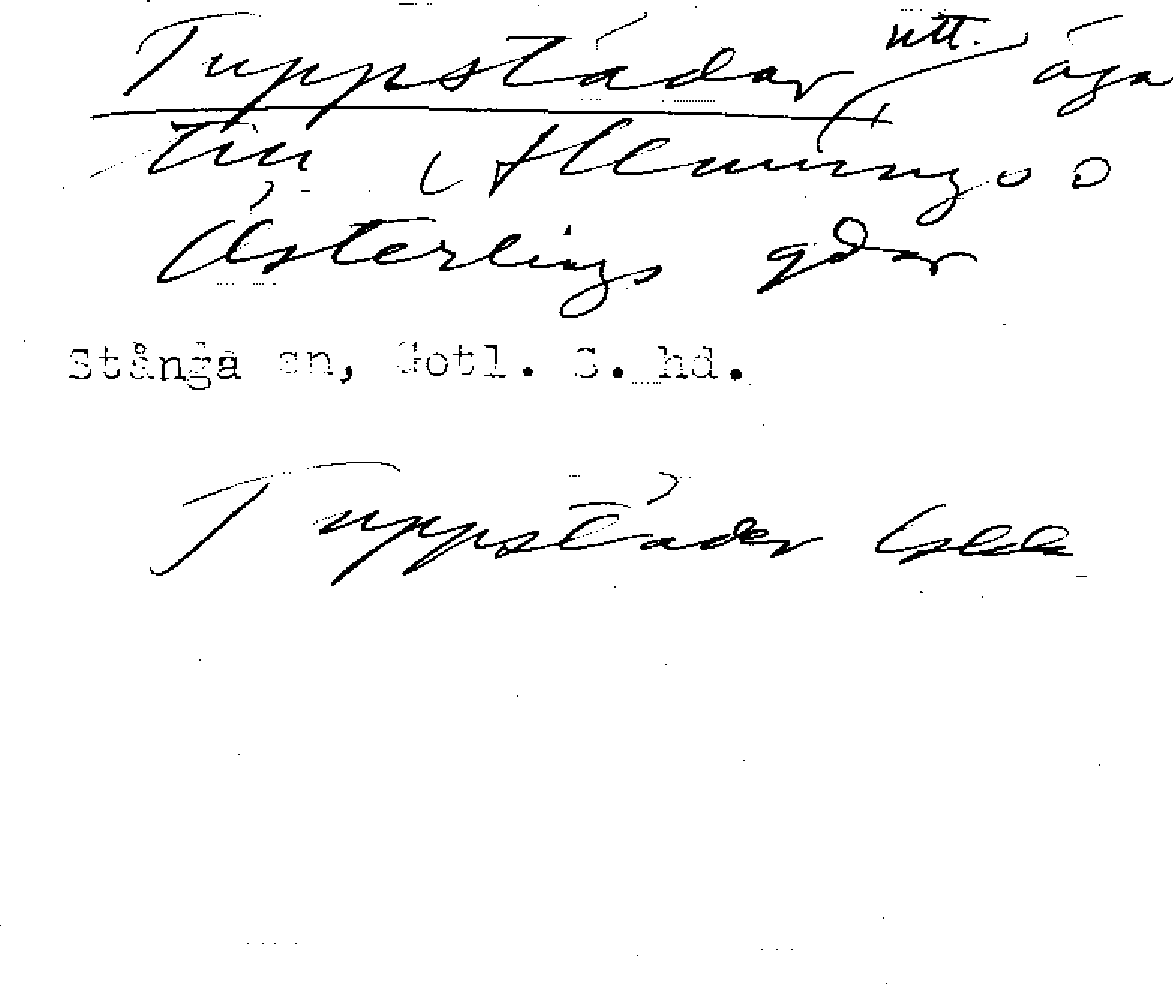 Tuppstädar utt. äga
till Hemings o
Österlings gdar
Stånga sn, Gotl. S. hd.
Tuppstäder